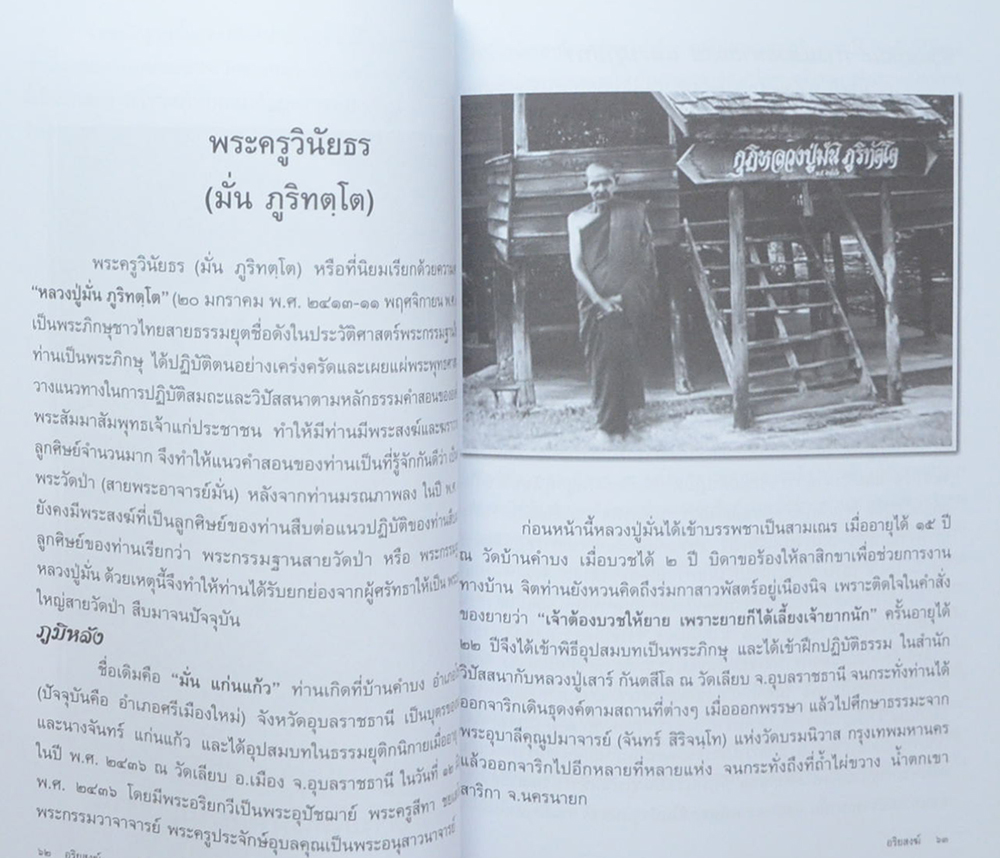 พระครูวินัยธร
(มั่น ภูริทตฺโต)
พระครูวินัยธร (มั่น ภูริทตฺโต) หรือที่นิยมเรียกด้วยความ
“หลวงปู่มั่น ภูริทตฺโต” (๒๐ มกราคม พ.ศ. ๒๔๑๓-๑๑ พฤศจิกายน พ.ศ.
เป็นพระภิกษุชาวไทยสายธรรมยุตชื่อดังในประวัติศาสตร์พระกรรมฐาน
ท่านเป็นพระภิกษุ ได้ปฏิบัติตนอย่างเคร่งครัดและเผยแผ่พระพุทธ
วางแนวทางในการปฏิบัติสมถะและวิปัสสนาตามหลักธรรมคำสอนของ
พระสัมมาสัมพุทธเจ้าแก่ประชาชน ทำให้มีท่านมีพระสงฆ์และ
ลูกศิษย์จำนวนมาก จึงทำให้แนวคำสอนของท่านเป็นที่รู้จักกันดีว่า
พระวัดป่า (สายพระอาจารย์มั่น) หลังจากท่านมรณภาพลง ในปี พ.ศ.
ยังคงมีพระสงฆ์ที่เป็นลูกศิษย์ของท่านสืบต่อแนวปฏิบัติของท่าน
ลูกศิษย์ของท่านเรียกว่า พระกรรมฐานสายวัดป่า หรือ
หลวงปู่มั่น ด้วยเหตุนี้จึงทำให้ท่านได้รับยกย่องจากผู้ศรัทธาให้เป็น
ใหญ่สายวัดป่า สืบมาจนปัจจุบัน
ภูมิหลัง
ชื่อเดิมคือ “มั่น แก่นแก้ว” ท่านเกิดที่บ้านคำบง
(ปัจจุบันคือ อำเภอศรีเมืองใหม่) จังหวัดอุบลราชธานี เป็นบุตร
และนางจันทร์ แก่นแก้ว และได้อุปสมบทในธรรมยุติกนิกายเมื่ออายุ
ในปี พ.ศ. ๒๔๓๖ ณ วัดเลียบ อ.เมือง จ.อุบลราชธานี ในวันที่ ๑๒
พ.ศ. ๒๔๓๖ โดยมีพระอริยกวีเป็นพระอุปัชฌาย์ พระครูสีทา
พระกรรมวาจาจารย์ พระครูประจักษ์อุบลคุณเป็นพระอนุสาวนาจารย์
๖๒ อริยสงฆ์
กุฏิหลวงปู่มั่น ภูริทัตโต
ก่อนหน้านี้หลวงปู่มั่นได้เข้าบรรพชาเป็นสามเณร เมื่ออายุได้ ๑๕ ปี
ณ วัดบ้านคำบง เมื่อบวชได้ ๒ ปี บิดาขอร้องให้ลาสิกขาเพื่อช่วยการงาน
ทางบ้าน จิตท่านยังหวนคิดถึงร่มกาสาวพัสตร์อยู่เนืองนิจ เพราะติดใจในคำสั่ง
ของยายว่า “เจ้าต้องบวชให้ยาย เพราะยายก็ได้เลี้ยงเจ้ายากนัก” ครั้นอายุได้
๒๒ ปีจึงได้เข้าพิธีอุปสมบทเป็นพระภิกษุ และได้เข้าฝึกปฏิบัติธรรม ในสำนัก
วิปัสสนากับหลวงปู่เสาร์ กันตสีโล ณ วัดเลียบ จ.อุบลราชธานี จนกระทั่งท่านได้
ออกจาริกเดินธุดงค์ตามสถานที่ต่างๆ เมื่อออกพรรษา แล้วไปศึกษาธรรมะจาก
พระอุบาลีคุณูปมาจารย์ (จันทร์ สิริจนฺโท) แห่งวัดบรมนิวาส กรุงเทพมหานคร
แล้วออกจาริกไปอีกหลายที่หลายแห่ง จนกระทั่งถึงที่ถ้ำไผ่ขวาง น้ำตกเขา
สาริกา จ.นครนายก
อริยสงฆ์ ๖๓